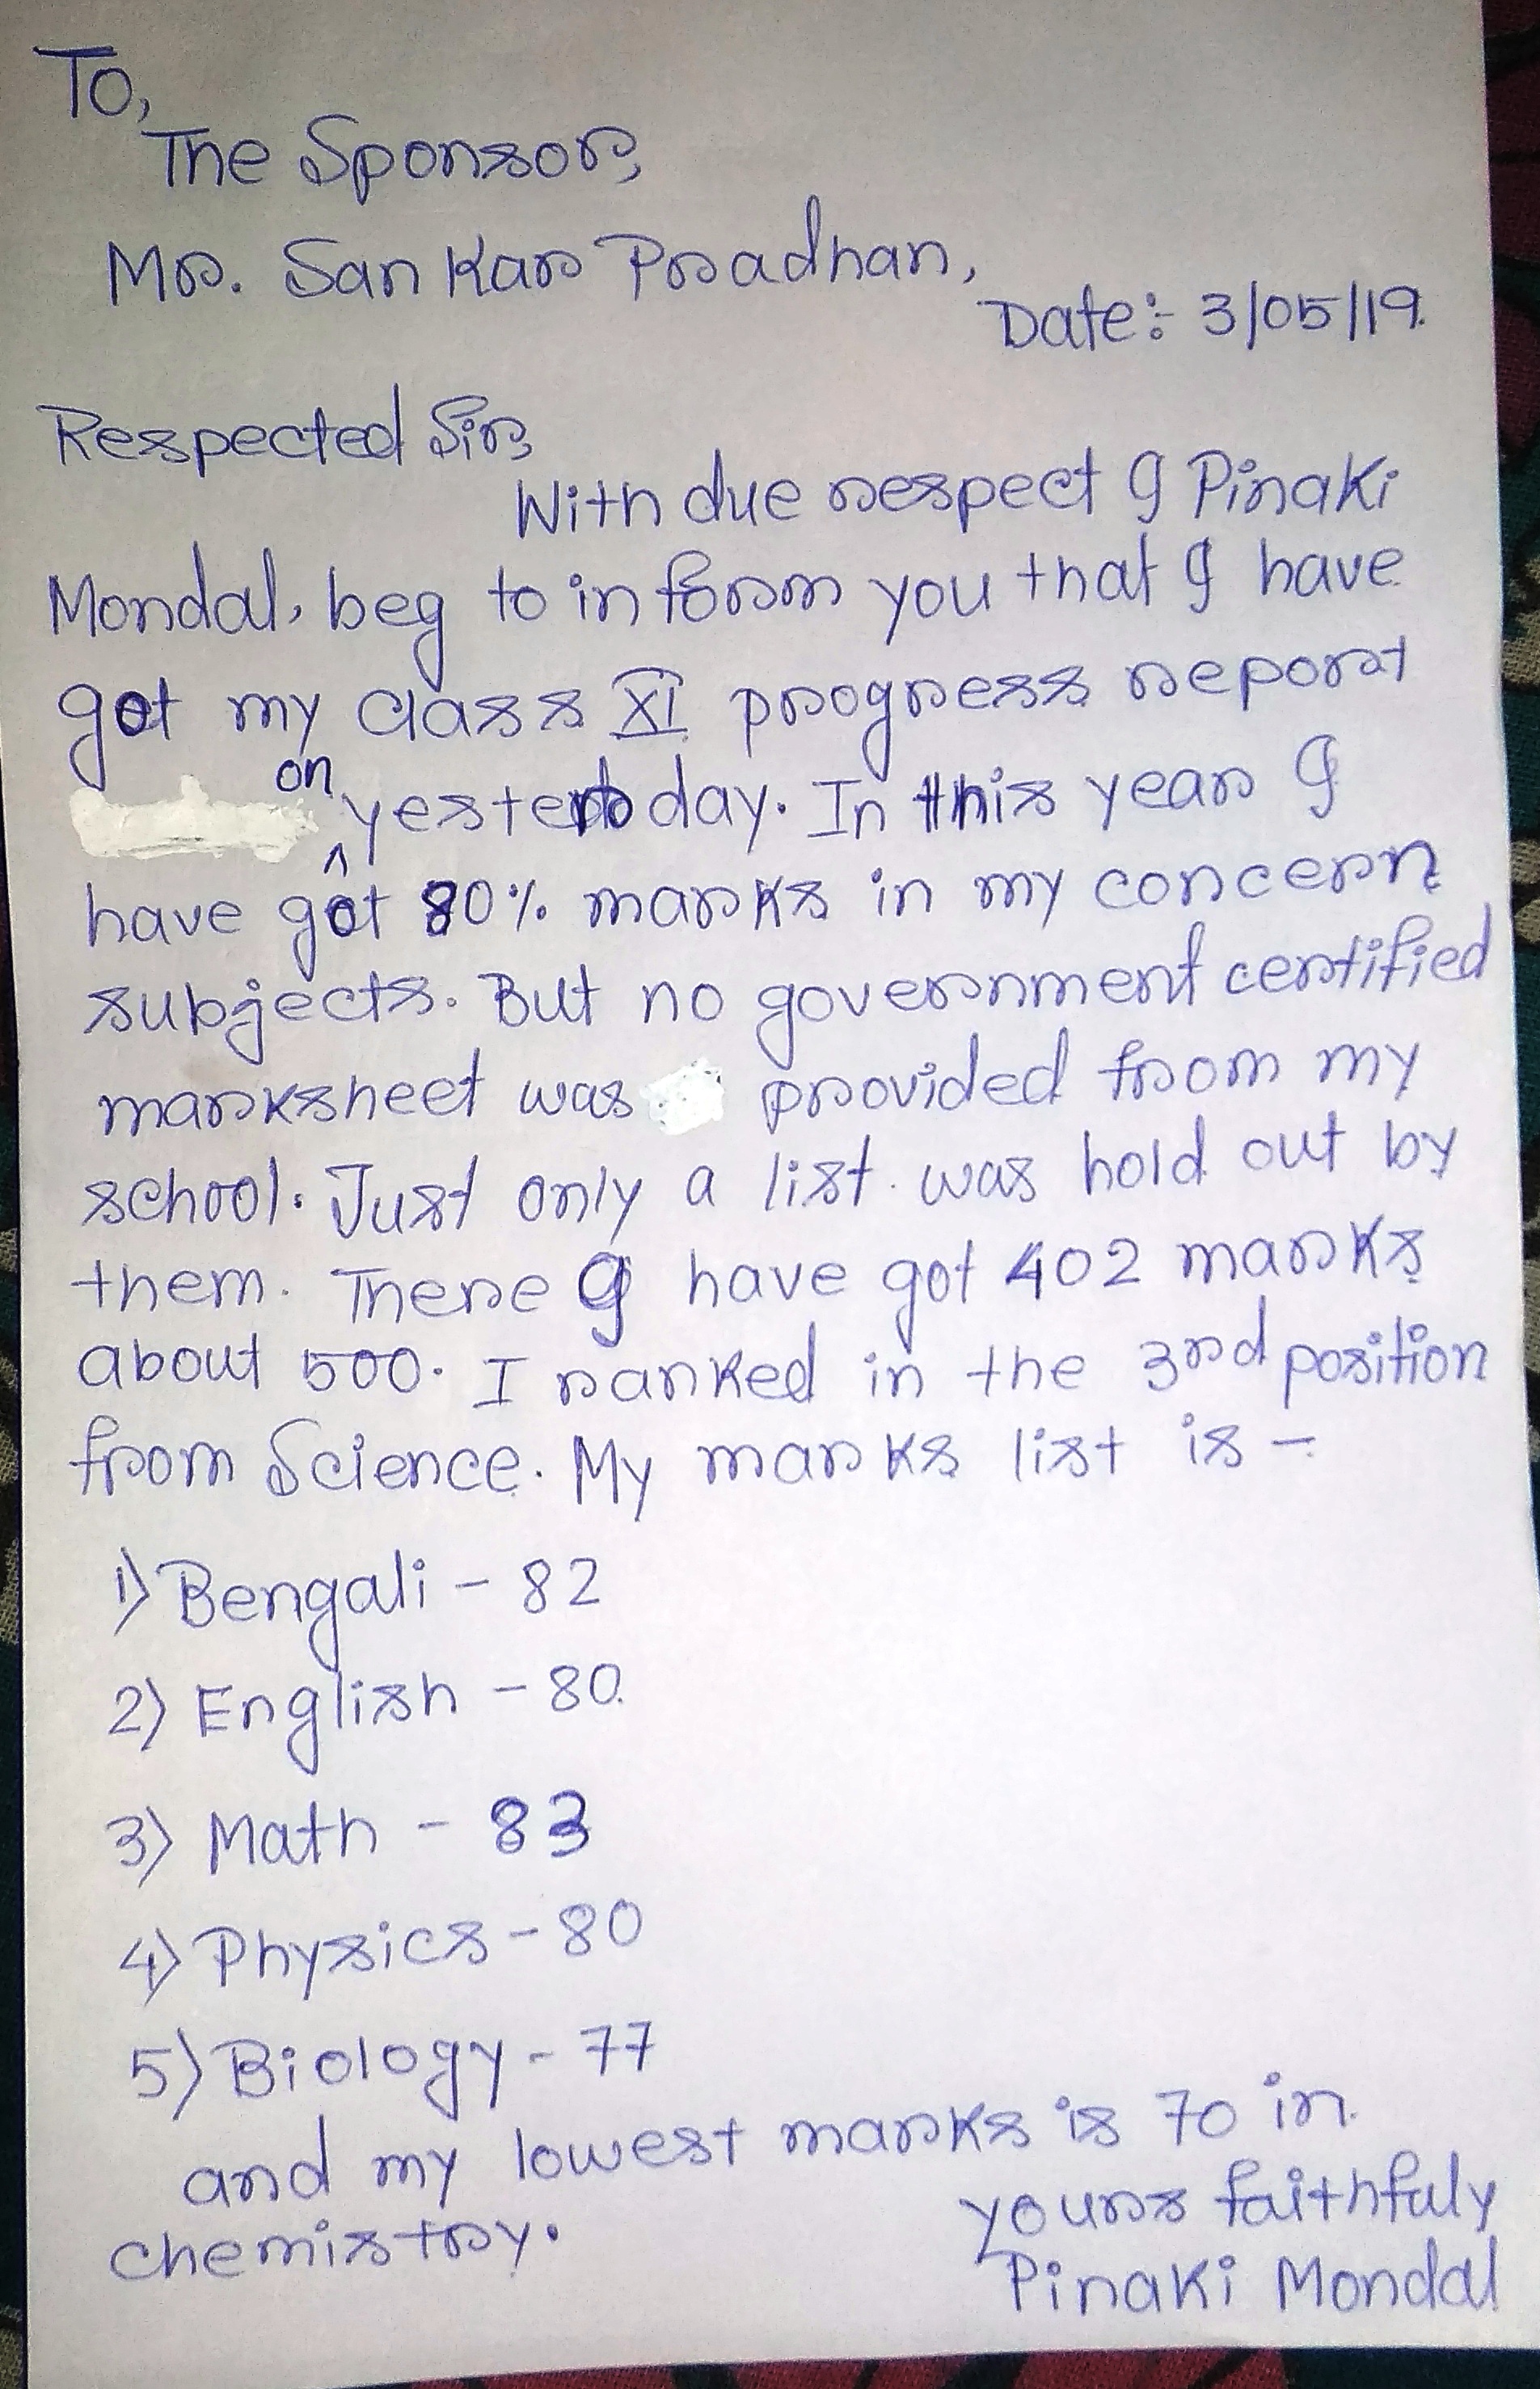 To,
The Sponsor,
Mr. Sankar Pradhan,
Date:- 3/05/19.
Respected Sir,
With due respect I Pinaki
Mondal, beg to inform you that I have
got my class XI progress report
on yesterday. In this year I
have got 80% marks in my concern
subjects. But no government certified
marksheet was provided from my
school. Just only a list was hold out by
them. There I have got 402 marks
about 500. I ranked in the 3rd position
from Science. My marks list is -
1) Bengali - 82
2) English - 80.
3) Math - 83
4) Physics - 80
5) Biology - 77
and my lowest marks is 70 in
chemistry.
yours faithfuly
Pinaki Mondal